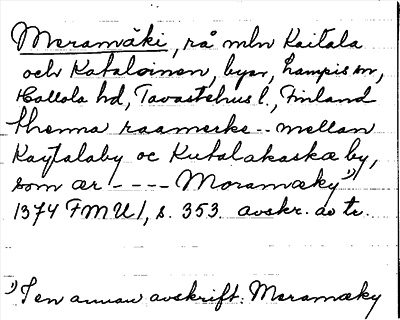 Moramäki, rå mln Kaitala
och Kataloinen, byar, Lampis sn,
Hollola hd, Tavastehus l., Finland
thenna raamerke -- mellan
Kaytalaby oc Kutalakaskæ by,
som ær - - - - Moramæky¹⁾
1374 FMU 1, s. 353 avskr. av tr.
¹⁾ I en annan avskrift: Moramæky